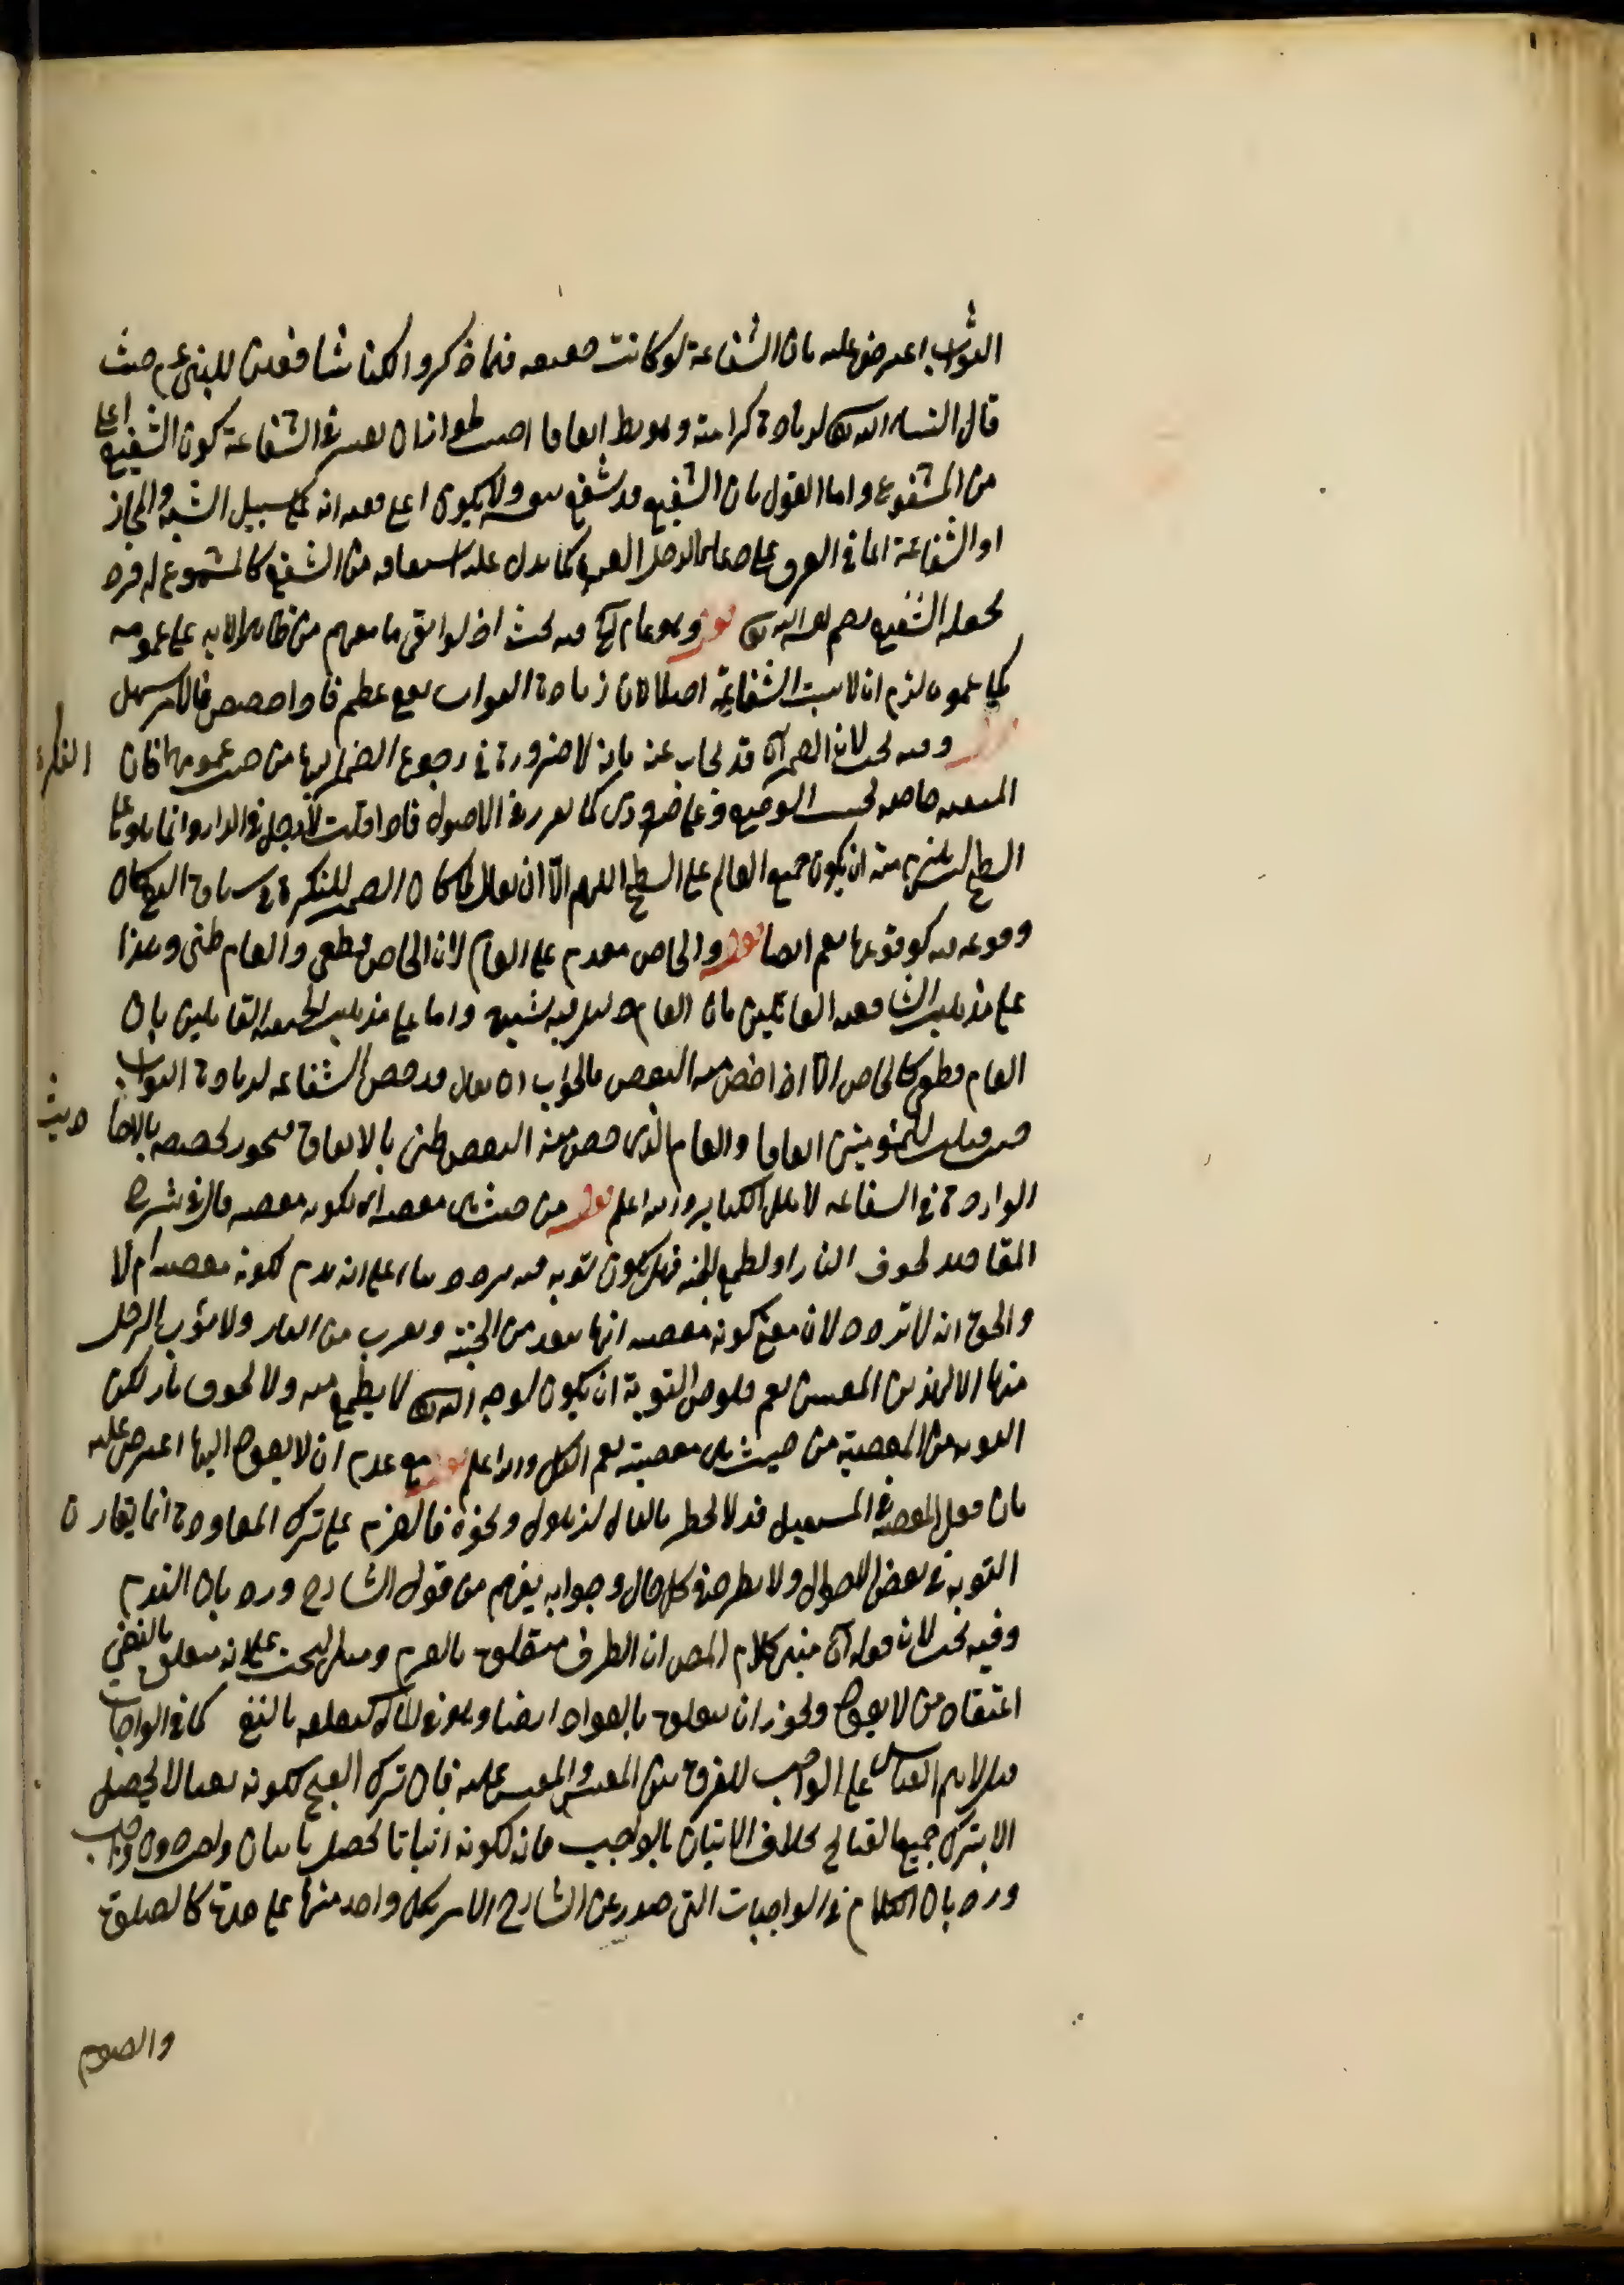 الثواب اعترض عليه بان الشفاعة لو كانت حقيقة فيما ذكروا لكنا شافعين للنبي عم حيث
قال الله زيادة كرامته وهو بط اتفاقا بان يعتبر في الشفاعة كون الشفيع اعلى
من المشفوع واما القول بان الشفيع قد يشفع ولا يكون اعلى انه على سبيل التشبيه والمجاز
او الشفاعة انما في العرف كما يدل عليه من الشفع كالمشفوع له فرد
يجعله الشفيع قوله وهو عام فيه بحث اذ لو ابقى ما من ظاهر الآية على عمومه
كما عموم لزم ان لا يثبت الشفاعة اصلا لان زيادة الثواب نفع عظيم فاذا خصص فالامر سهل
وفيه بحث لان الضمير آه قد يجاب عنه بانه لا ضرورة في رجوع الضمير اليها من حيث عمومها فان النكرة
المنفية خاصة بحسب الوضع وعمومها ضروري كما تقرر في الاصول فاذا قلت لا رجل في الدار وانما هو على
السطح ليس يلزم منه ان يكون جميع العالم على السطح اللهم الا ان يقال لما كان الضمير للنكرة في سياق النفي كان
وقوعه فيه كوقوعها فيعم ايضا قوله والخاص مقدم على العام لان الخاص قطعي والعام ظني وهذا
على مذهب الشافعية القائلين بان العام دليل فيه شبهة واما على مذهب الحنفية القائلين بان
العام قطعي كالخاص الا اذا خص منه البعض فالجواب ان يقال قد خص الشفاعة لزيادة الثواب
للمؤمنين اتفاقا والعام الذي خص منه البعض ظني بالاتفاق فيجوز تخصيصه بالاحاديث
الواردة في الشفاعة لاهل الكبائر والله اعلم قوله من حيث هي معصية اي لكونه معصية قال في شرح
المقاصد لخوف النار او لطمع الجنة فهل يكون توبة فيه تردد بناء على انه ندم لكونه معصية ام لا
والحق انه لا تردد لان معنى كونه معصية انها تبعد من الجنة وتقرب من النار ولا يتوب الرجل
منها الا لهذين المعنيين نعم خلوص التوبة ان يكون لوجه الله تعالى لا لطمع جنة ولا لخوف نار لكن
التوبة من المعصية من حيث هي معصية تعم الكل والله اعلم قوله مع عدم ان لا يعود اليها اعترض عليه
بان فعل المعصية في المستقبل قد لا يخطر بالبال لذهول ونحوه فالعزم على ترك المعاودة انما يقارن
التوبة في بعض الاحوال ولا يطرد في كل حال وجوابه يفهم من قول الشارح ورد بان الندم
وفيه بحث لان قوله آه مبنى كلام المص ان الظرف متعلق بالعزم ومبنى البحث على انه متعلق بالنفي
اعتقاده من لا يعود ويجوز ان يتعلق بالعود ايضا وهو في المآل كتعلقه بالنفي كما في الواجبات
قيل لا يتم القياس على الواجب للفرق بين المقيس والمقيس عليه فان ترك القبيح لكونه نفيا لا يحصل
الا بترك جميع القبائح بخلاف الاتيان بالواجب فانه لكونه اثباتا يحصل باتيان واحد دون واجب
ورد بان الكلام في الواجبات التي صدر عن الشارع الامر بكل واحد منها على حدة كالصلوة
والصوم